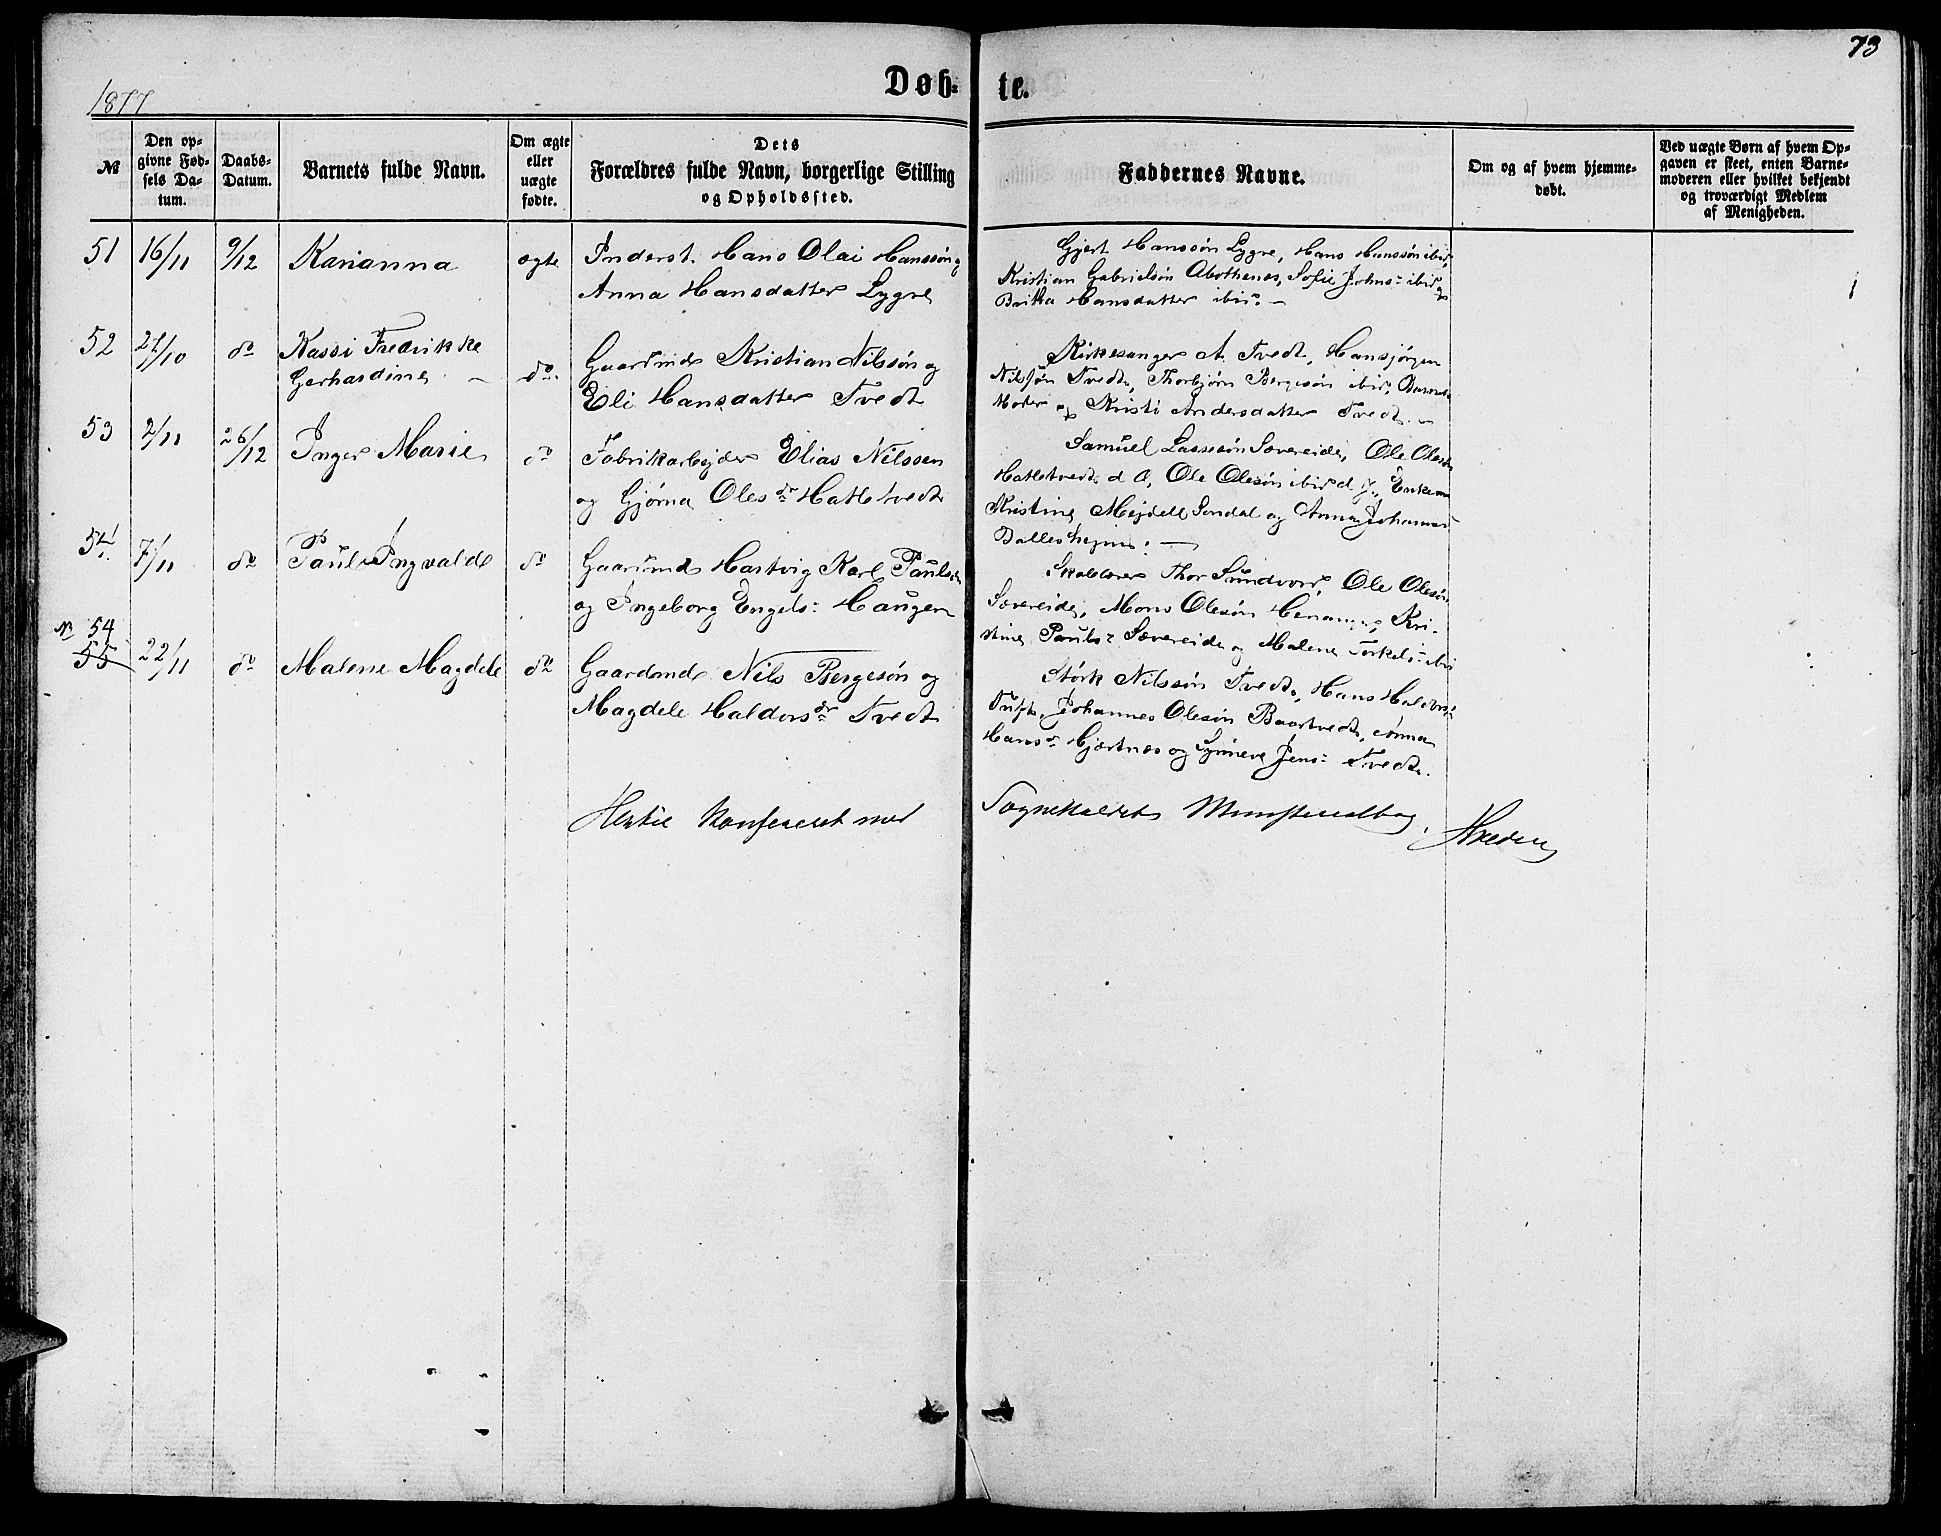 73
1877
Døb- te.
№
Den op-
givne Fød-
sels Da-
tum.
Daabs-
Datum.
Barnets fulde Navn.
Om ægte
eller
uægte
fødte.
Dets
Forældres fulde Navn, borgerlige Stilling
og Opholdssted.
Faddernes Navne.
Om og af hvem hjemme-
døbt.
Ved uægte Børn af hvem Op-
gaven er skeet, enten Barne-
moderen eller hvilket bekjendt
og troværdigt Medlem
af Menigheden.
51 16/11 9/12 Karianna ægte Inderst. Hans Olai Hanssøn og
Anna Hansdatter Lygre
Gjert Hanssøn Lygre, Hans Hanssøn ibid,
Kristian Gabrielsøn Abothenes, Sofie Johns- ibid og
Britha Hansdatter ibid. –
52 21/10 do Kassi Fredrikke
Gerhardine – do. Gaardmd Kristian Nilssøn og
Eli Hansdatter Tvedt
Kirkesanger A. Tvedt, Hansjørgen
Nilssøn Tvedt, Thorbjørn Bergesøn ibid, Barnets
Moder og Kristi Andersdatter Tvedt. –
53 2/11 26/12 Inger Marie do Fabrikarbejder Elias Nilssen
og Gjørna Olesdr Hatletvedt
Samuel Lassesøn Sævereide, Ole Olesøn
Hatletvedt d. Æ, Ole Olesøn ibid d. y., Enkema
Kristine Mejdell Sundal og Anna Johannes-
54. 7/11 do Paul Ingvald do Gaardmd Hartvig Karl Paulsøn
og Ingeborg Engels: Haugen
Skolelærer Thor Sundvor, Ole Olesøn
Sævereide, Mons Olesøn Henanger, Kri-
stine Pauls- Sævereide og Malene Torkels- ibid
№ 54
55 22/11 do Malene Magdele do Gaardmd Nils Bergesøn og
Magdele Haldorsdr Tvedt
Størk Nilssøn Tvedt, Hans Haldors-
Tuft, Johannes Olesøn Baartvedt, Anna
Hansd- Hjertnes og Synneve Jens- Tvedt.
Hertil konfereret med Sognekaldets Ministerialbog.